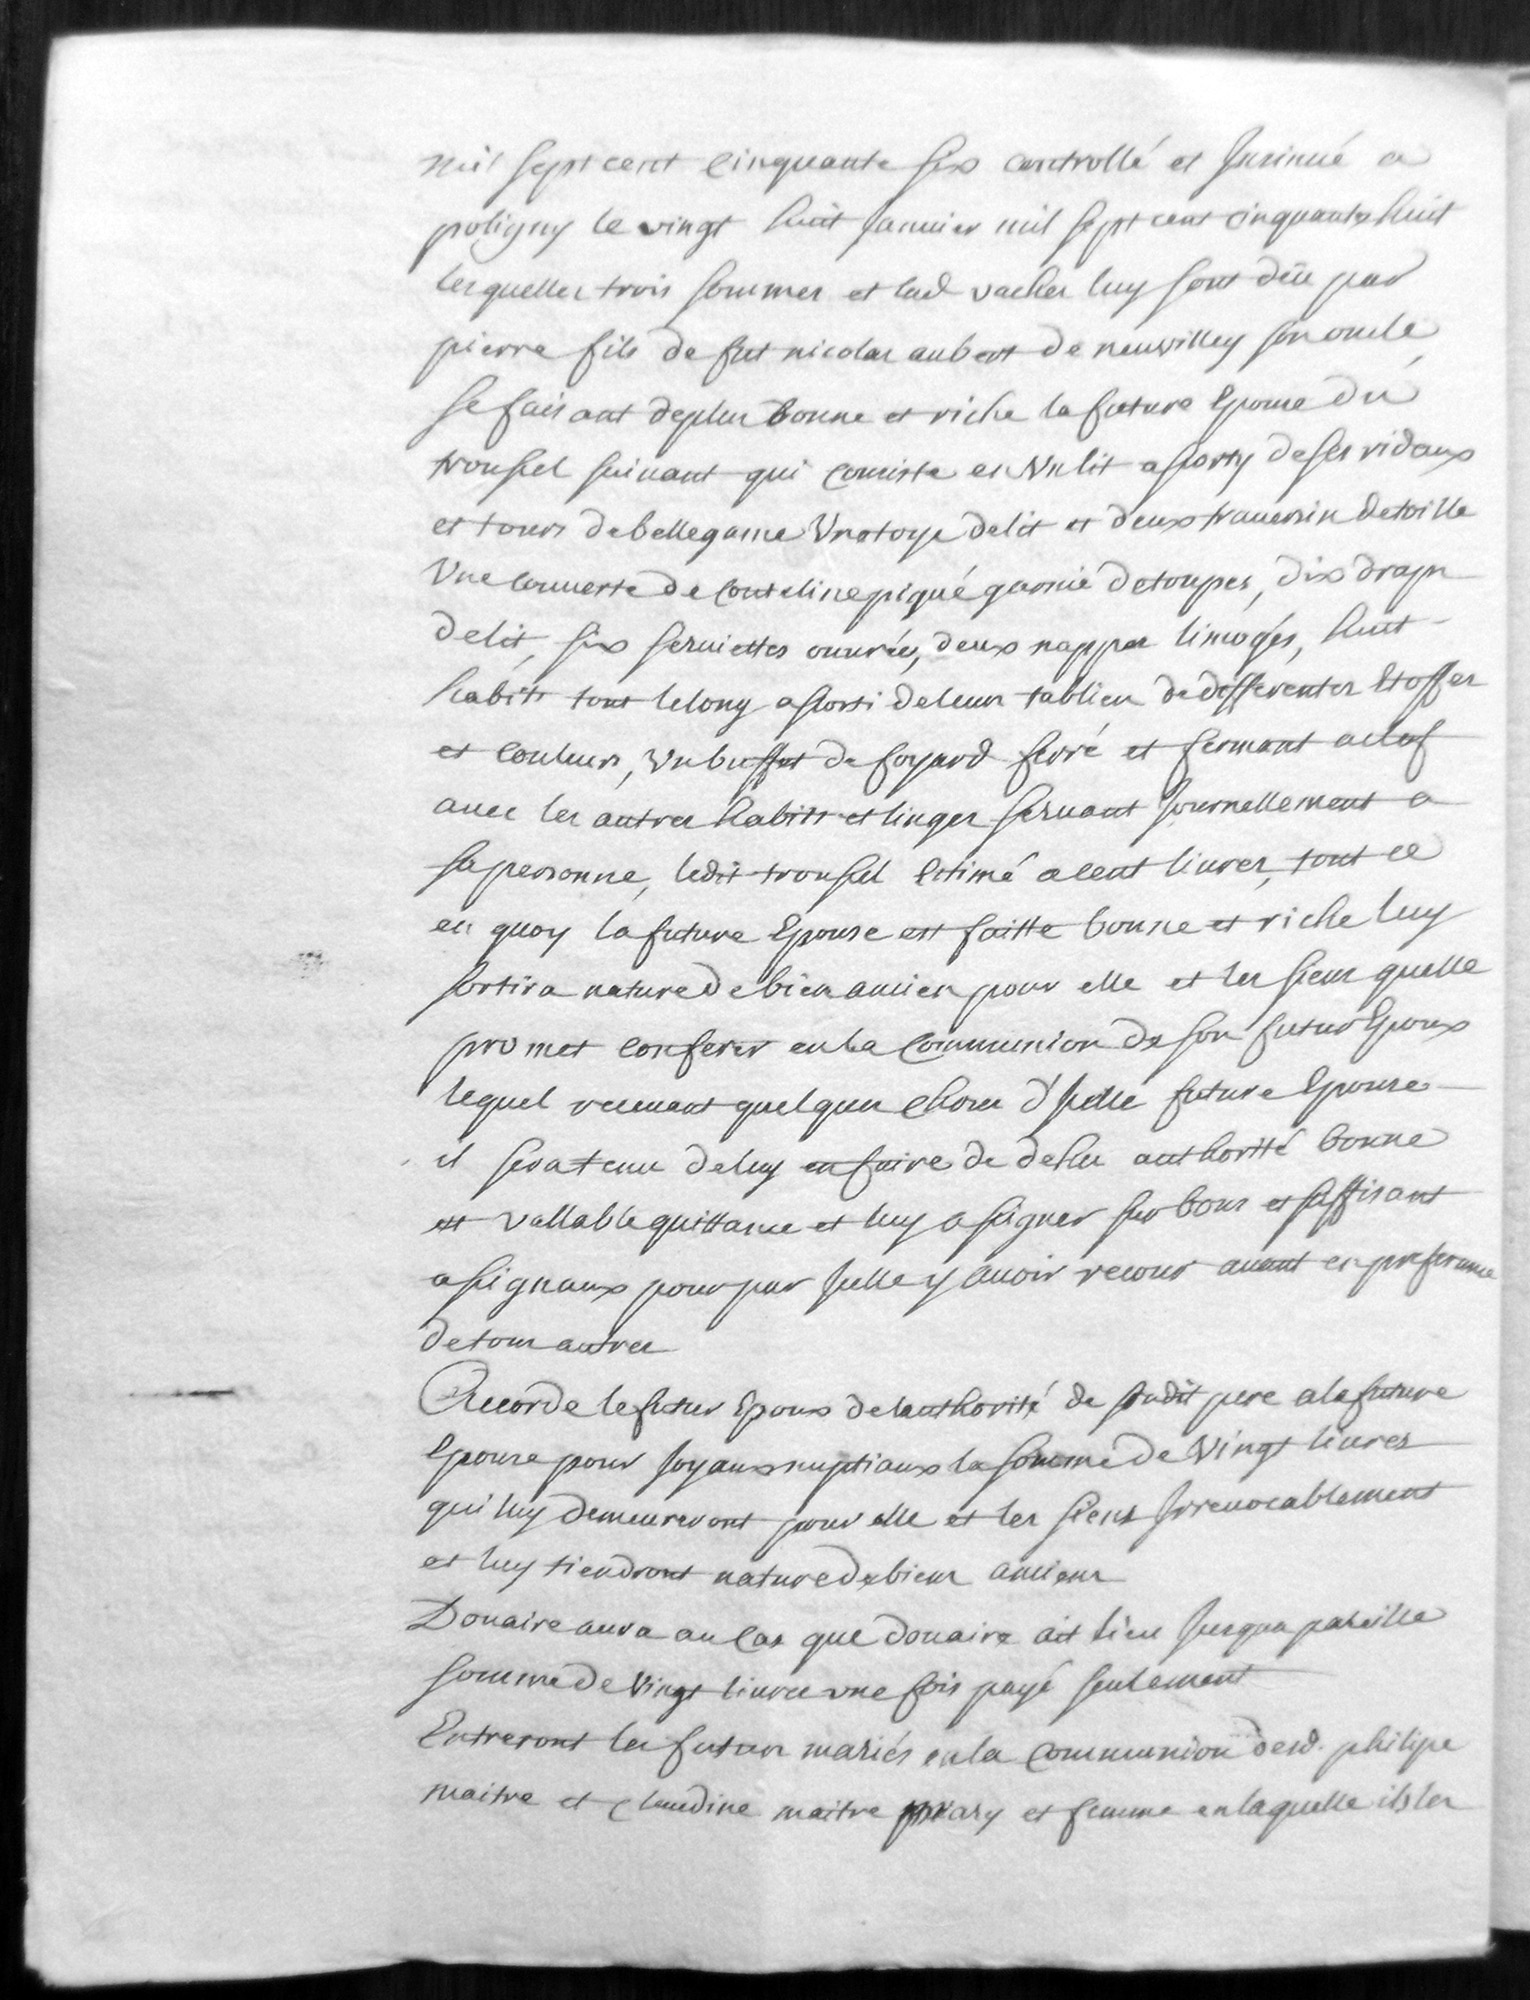 mil sept cent cinquante six controllé et Insinué a
poligny le vingt huit Janvier mil sept cent cinquante huit
lesquelles trois sommes et lad vaches luy sont düe par
pierre fils de fut nicolas aubert de neuvilley son oncle
se faisant deplus bonne et riche la future Epouse du
troussel suivant qui consiste en Vn lit assorty deses ridaux
et tours de bellegame Vne toye delit et deux traversin detoille
Vne couverte de couteline piqué garnie detoupes, dix draps
delit, six serviettes ouvrée, deux nappes limogés, huit
habits tout lelong assorti deleurs tablier de differentes Etoffes
et couleurs, Vn buffet de foyard ferré et fermant aclef
avec les autres habits et linges servant Journellement a
sa personne, ledit troussel Estimé acent livres, tout ce
en quoy la future Epouse est faitte bonne et riche luy
sortira nature de bien ancien pour elle et les siens quelle
promet conferer en la Communion de son futur Epoux
lequel recevant quelques choses d'Icelle future Epouse
il sera tenu deluy en faire de dehue authorité bonne
et vallable quittance et luy assigner sur bons et suffisant
assignaux pour par Icelle y avoir recour avant en preferance
detous autres
Accorde le futur Epoux de lauthorité de sondit pere a la future
Epouse pour Joyaux nuptiaux la somme de Vingt livres
qui luy demeureront pour elle et les siens Irrevocablement
et luy tiendront nature de biens anciens
Douaire aura au cas que douaire ait lieu Jusqua pareille
somme de Vingt livres vne fois payé seulement
Entreront les futurs mariés en la Communion desd. philipe
maitre et Claudine maitre mary et femme en laquelle ils les